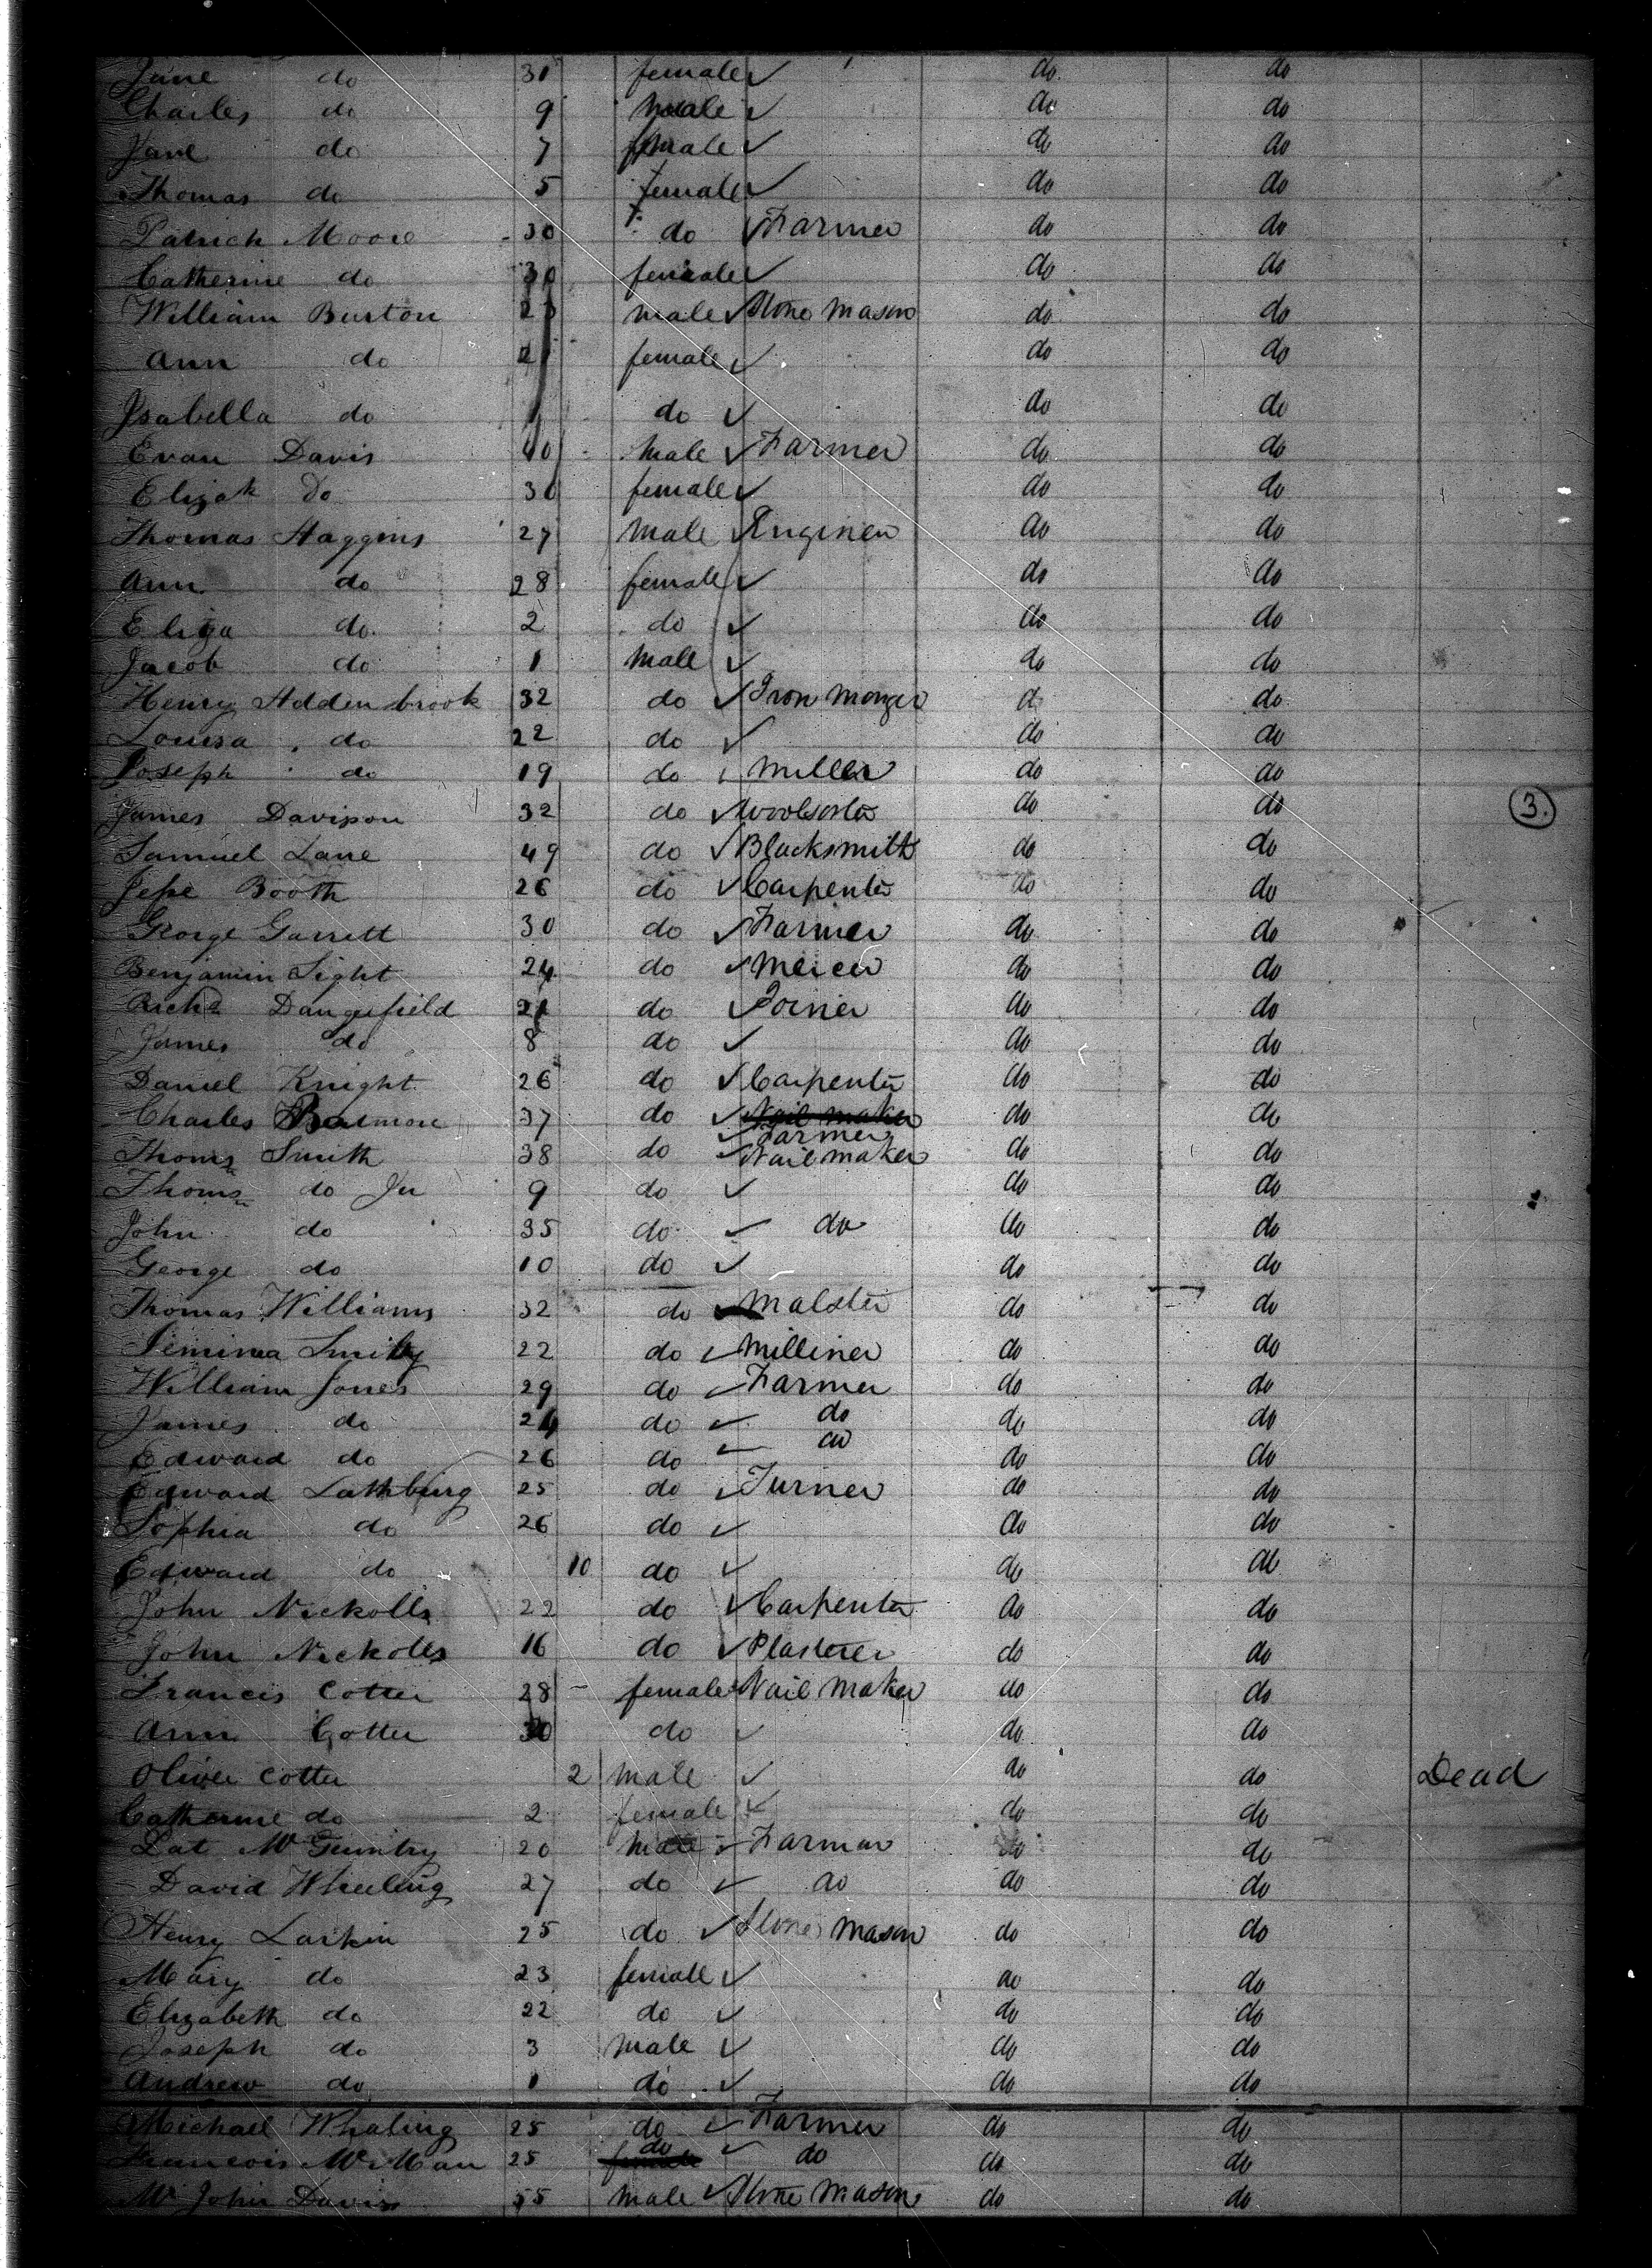 Jane do 31 female do do
Charles do 9 male do do
Jane do 7 female do do
Thomas do 5 female do do
Patrick Moore 30 do Farmer do do
Catherine do 30 female do do
William Burton 23 male Stone Mason do do
Ann do 21 female do do
Isabella do 1 do do do
Evan Davis 40 male Farmer do do
Elizah Do 30 female do do
Thomas Haggins 27 Male Engineer do do
Ann do 28 female do do
Eliza do 2 do do do
Jacob do 1 Male do do
Henry Addenbrook 32 do Iron Monger do do
Louisa do 22 do do do
Joseph do 19 do Miller do do
James Davison 32 do Woolsorter do do
3.
Samuel Lane 49 do Blacksmith do do
Jesse Booth 26 do Carpenter do do
George Garrett 30 do Farmer do do
Benjamin Light 24 do Mercer do do
Richd Dangerfield 21 do Joiner do do
James do 8 do do do
Daniel Knight 26 do Carpenter do do
Charles 37 do Nail maker do do
Farmer
Thoms Smith 38 do Nail maker do do
Thoms do Ju 9 do do do
John do 35 do do do do
George do 10 do do do
Thomas Williams 32 do Malster do do
Jemima 22 do Milliner do do
William Jones 29 do Farmer do do
James do 24 do do do do
Edward do 26 do do do do
Edward Lathbury 25 do Turner do do
Sophia do 26 do do do
Edward do 10 do do do
John Nickolls 22 do Carpenter do do
John Nickolls 16 do Plasterer do do
Francis Cotter 28 female Nail Maker do do
Ann Cotter 30 do do do
Oliver Cotter 2 male do do Dead
Catherine do 2 female do do
Pat 20 male Farmer do do
David Wheeling 27 do do do do
Henry Larkin 25 do Stone Mason do do
Mary do 23 female do do
Elizabeth do 22 do do do
Joseph do 3 male do do
Andrew do 1 do do do
Michael Whaling 25 do Farmer do do
do
Francois 25 female do do do
Mr John Davis 55 Male Stone Mason do do